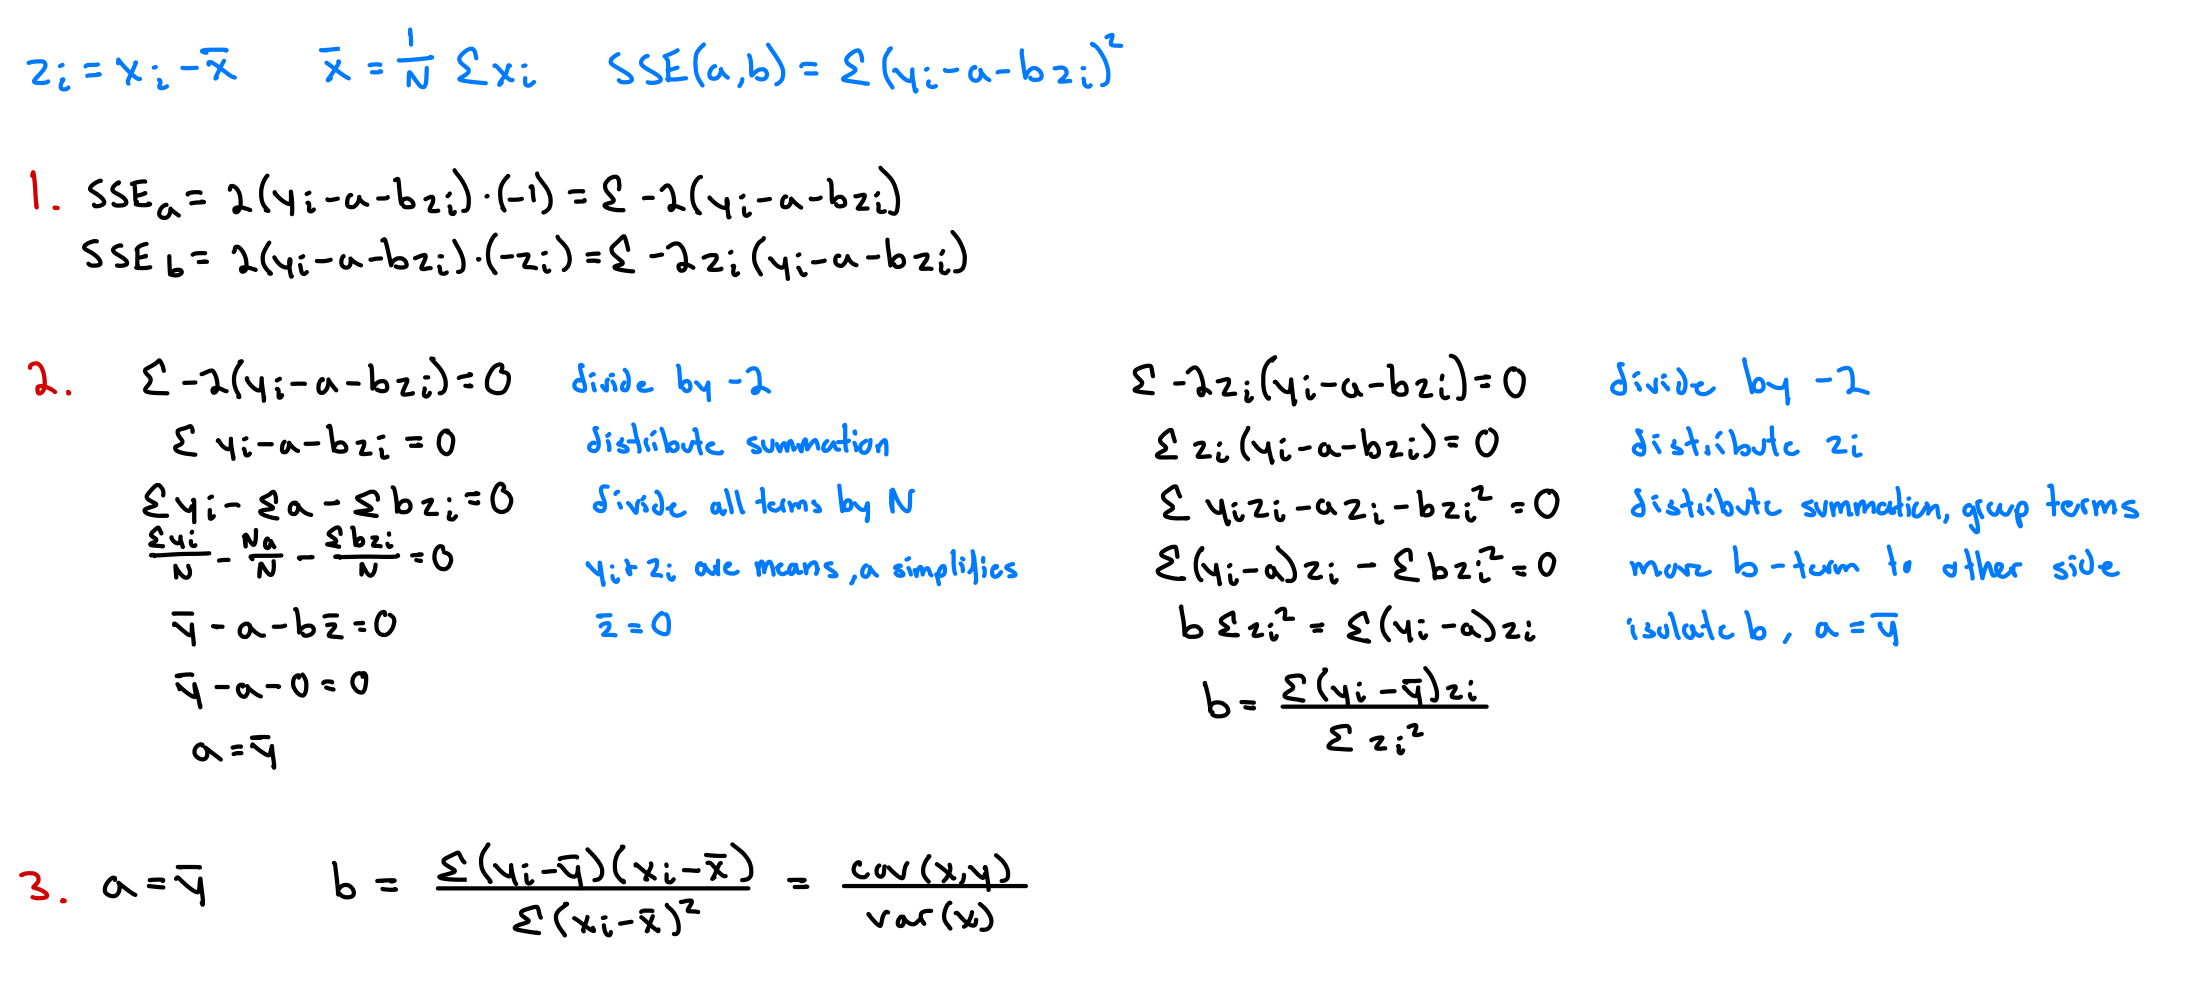 zᵢ = xᵢ - x̄    x̄ = 1/N Σxᵢ    SSE(a,b) = Σ(yᵢ-a-bzᵢ)²
1. SSEₐ = 2(yᵢ-a-bzᵢ)·(-1) = Σ -2(yᵢ-a-bzᵢ)
SSE_b = 2(yᵢ-a-bzᵢ)·(-zᵢ) = Σ -2zᵢ(yᵢ-a-bzᵢ)
2. Σ -2(yᵢ-a-bzᵢ) = 0    divide by -2
Σ yᵢ-a-bzᵢ = 0    distribute summation
Σyᵢ - Σa - Σbzᵢ = 0    divide all terms by N
Σyᵢ/N - Na/N - Σbzᵢ/N = 0    yᵢ + zᵢ are means, a simplifies
ȳ - a - bz̄ = 0    z̄ = 0
ȳ - a - 0 = 0
a = ȳ
Σ -2zᵢ(yᵢ-a-bzᵢ) = 0    divide by -2
Σ zᵢ(yᵢ-a-bzᵢ) = 0    distribute zᵢ
Σ yᵢzᵢ - azᵢ - bzᵢ² = 0    distribute summation, group terms
Σ(yᵢ-a)zᵢ - Σbzᵢ² = 0    move b-term to other side
bΣzᵢ² = Σ(yᵢ-a)zᵢ    isolate b, a = ȳ
b = Σ(yᵢ-ȳ)zᵢ / Σzᵢ²
3. a = ȳ    b = Σ(yᵢ-ȳ)(xᵢ-x̄) / Σ(xᵢ-x̄)² = cov(x,y) / var(x)